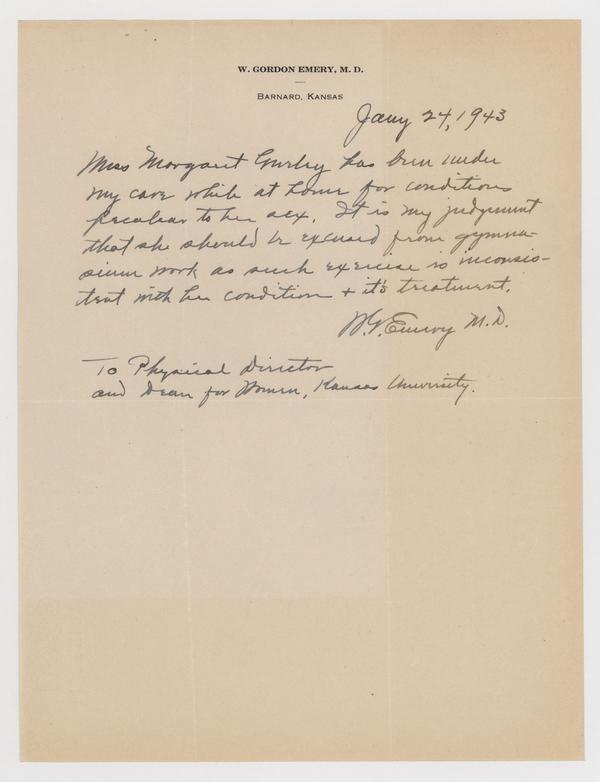 W. GORDON EMERY, M. D.
BARNARD, KANSAS
Jany 24, 1943
Miss Margaret Gurley has been under
my care while at home for conditions
peculiar to her sex. It is my judgement
that she should be excused from gymna-
sium work as such exercise is inconsis-
tent with her condition + it's treatment.
W.G. Emery M.D.
To Physical Director
and Dean for Women, Kansas University.